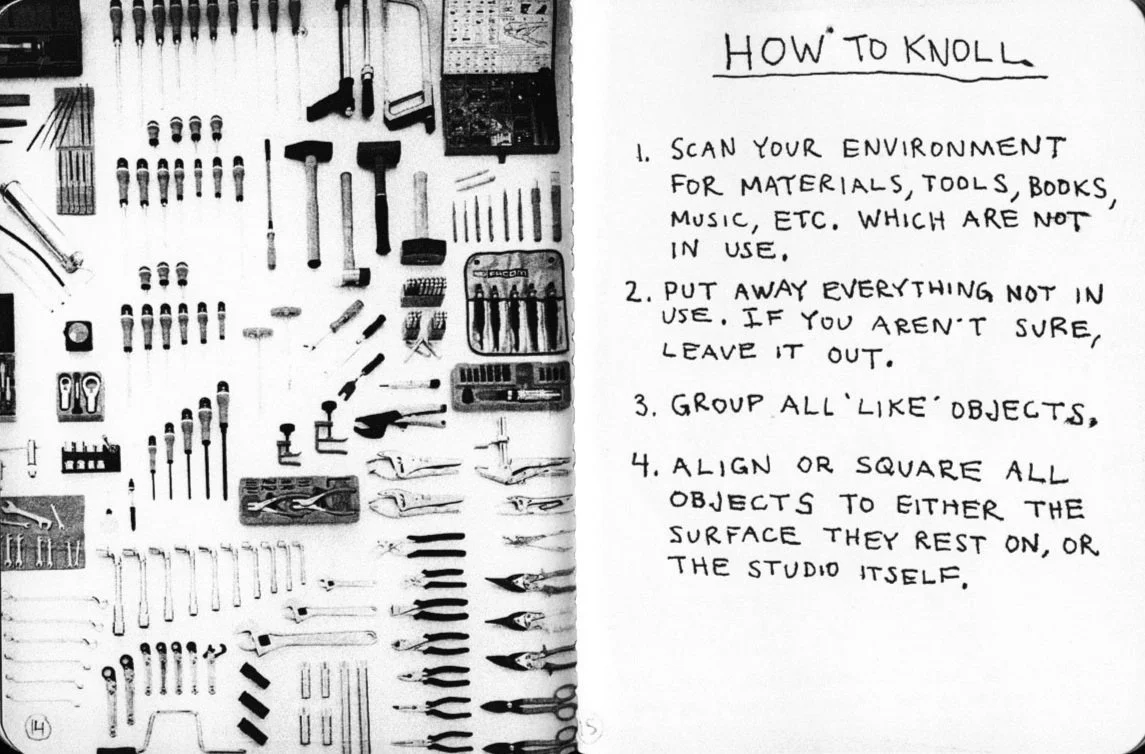 FACOM
14
HOW TO KNOLL.
1. SCAN YOUR ENVIRONMENT
FOR MATERIALS, TOOLS, BOOKS,
MUSIC, ETC. WHICH ARE NOT
IN USE.
2. PUT AWAY EVERYTHING NOT IN
USE. IF YOU AREN'T SURE,
LEAVE IT OUT.
3. GROUP ALL 'LIKE' OBJECTS.
4. ALIGN OR SQUARE ALL
OBJECTS TO EITHER THE
SURFACE THEY REST ON, OR
THE STUDIO ITSELF.